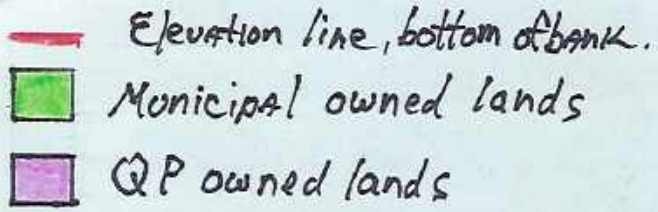 Elevation line, bottom of bank.
Municipal owned lands
QP owned lands